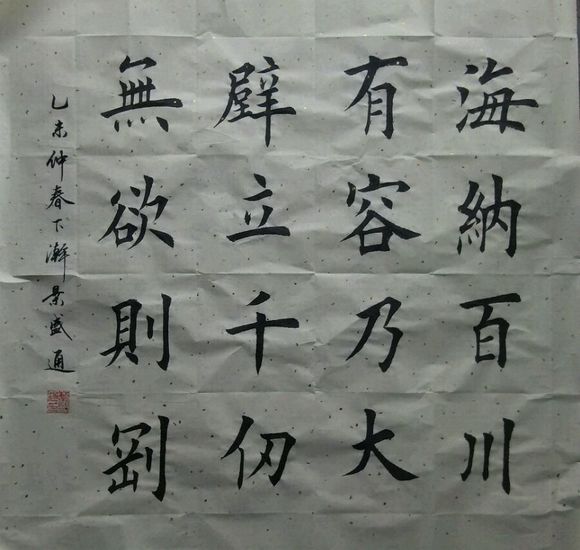 海納百川
有容乃大
壁立千仞
無欲則剛
乙未仲春下澣景盛通